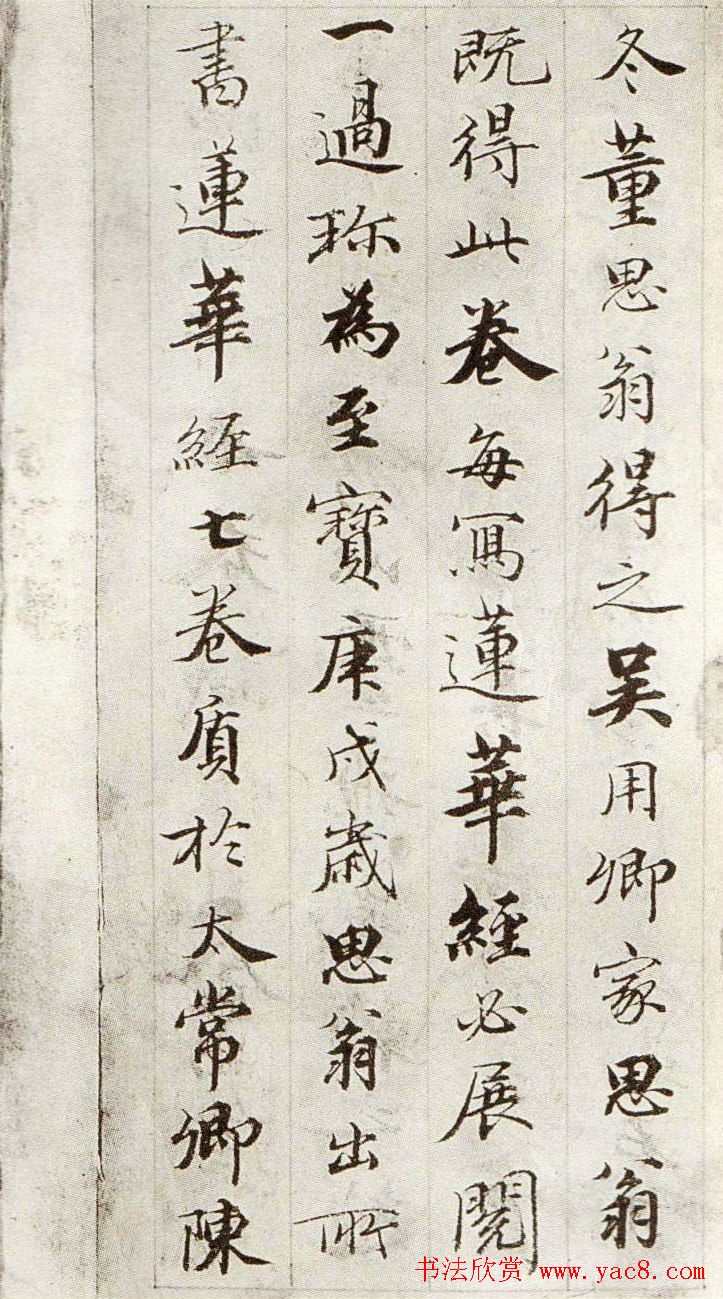 冬董思翁得之吴用卿家思翁
既得此卷每寫蓮華經必展閱
一過珎為至寳庚戌歳思翁出所
書蓮華經七卷質於太常卿陳
书法欣赏 www.yac8.com